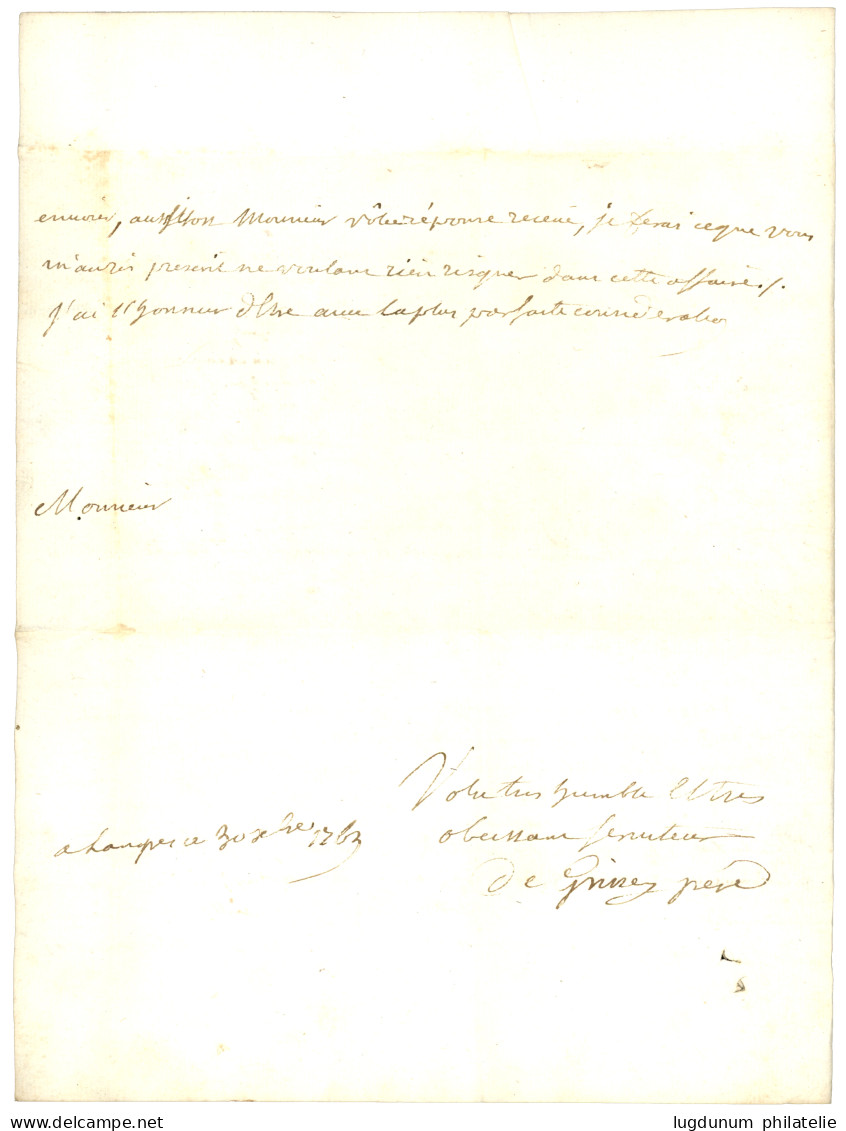 envoier, aussitost Monsieur vôtre réponse receue, je ferai ce que vous
m'aurés prescrit ne voulant rien risquer dans cette affaire ./.
J'ai l'honneur d'Etre avec la plus parfaite consideration
Monsieur
Votre tres humble Et tres
obeissant serviteur
a Langres ce 30 xbre 1763
de Grisez père
lugdunum philatelie